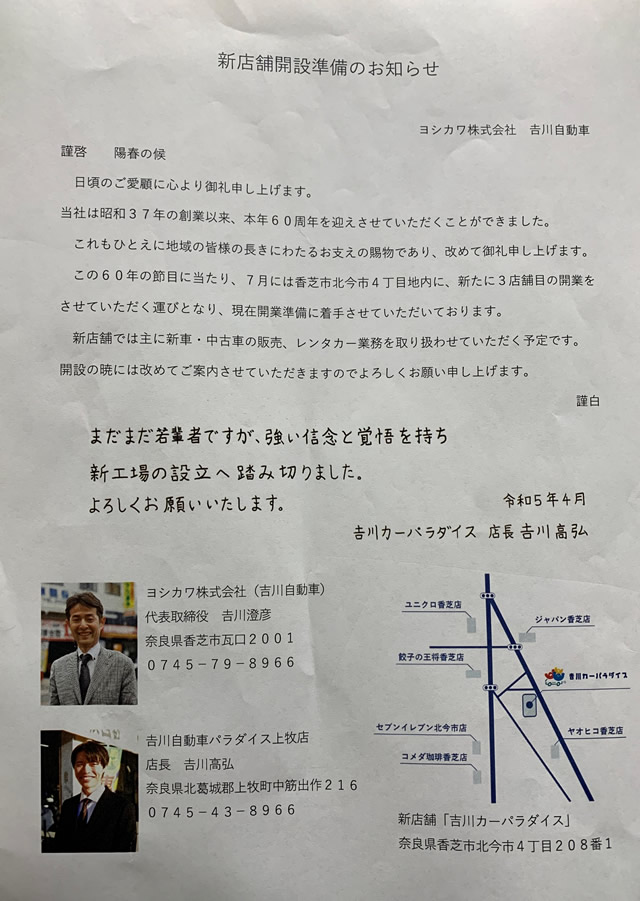 新店舗開設準備のお知らせ
ヨシカワ株式会社　𠮷川自動車
謹啓　　陽春の候
日頃のご愛顧に心より御礼申し上げます。
当社は昭和３７年の創業以来、本年６０周年を迎えさせていただくことができました。
これもひとえに地域の皆様の長きにわたるお支えの賜物であり、改めて御礼申し上げます。
この６０年の節目に当たり、７月には香芝市北今市４丁目地内に、新たに３店舗目の開業を
させていただく運びとなり、現在開業準備に着手させていただいております。
新店舗では主に新車・中古車の販売、レンタカー業務を取り扱わせていただく予定です。
開設の暁には改めてご案内させていただきますのでよろしくお願い申し上げます。
謹白
まだまだ若輩者ですが、強い信念と覚悟を持ち
新工場の設立へ踏み切りました。
よろしくお願いいたします。
令和５年４月
𠮷川カーパラダイス　店長　𠮷川高弘
ヨシカワ株式会社（𠮷川自動車）
代表取締役　𠮷川澄彦
奈良県香芝市瓦口２００１
０７４５－７９－８９６６
𠮷川自動車パラダイス上牧店
店長　𠮷川高弘
奈良県北葛城郡上牧町中筋出作２１６
０７４５－４３－８９６６
ユニクロ香芝店
ジャパン香芝店
餃子の王将香芝店
𠮷川カーパラダイス
セブンイレブン北今市店
ヤオヒコ香芝店
コメダ珈琲香芝店
新店舗「𠮷川カーパラダイス」
奈良県香芝市北今市４丁目２０８番１